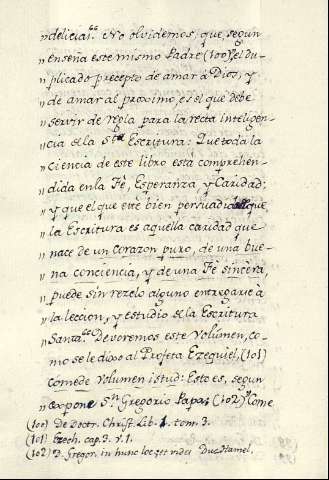 "delicias." No olvidemos, que, segun
"enseña este mismo Padre (100) el du-
"plicado precepto de amar à Dios, y
"de amar al proximo, es el que debe
"servir de regla para la recta inteligen-
"cia de la Sta Escritura: Que toda la
"ciencia de este libro està comprehen-
"dida en la Fè, Esperanza, y Caridad;
"y que el que estè bien persuadido de que
"la Escritura es aquella caridad que
"nace de un corazon puro, de una bue-
"na conciencia, y de una Fè sincera,
"puede sin rezelo alguno entregarse à
"la leccion, y estudio de la Escritura
"Santa. Devoremos este Volúmen, co-
"mo se le dixo al Profeta Ezequiel, (101)
"comede volumen istud: Esto es, segun
"expone Sn Gregorio Papa, (102) Come
(100) De Doctr. Christ. Lib. 1. tom. 3.
(101) Ezech. cap. 3. v. 1.
(102) D. Gregor. in hunc loc.